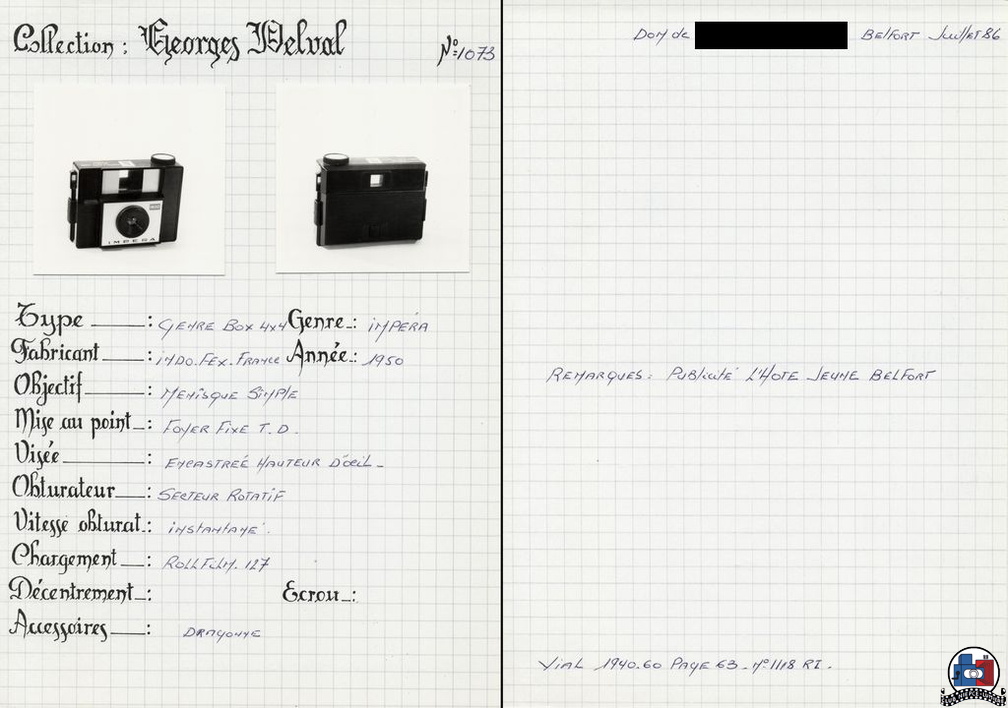 Collection : Georges Delval
N°:1073
IMPERA
Type : GENRE BOX 4x4 Genre : IMPÉRA
Fabricant : INDO.FEX.FRANCE Année : 1950
Objectif : MENISQUE SIMPLE
Mise au point : FOYER FIXE T.D.
Visée : ENCASTREÉ HAUTEUR D'ŒIL
Obturateur : SECTEUR ROTATIF
Vitesse obturat. : INSTANTANÉ.
Chargement : ROLLFILM. 127
Décentrement : Ecrou :
Accessoires : DRAGONNE
DON de BELFORT Juillet 86
REMARQUES : PUBLICITÉ L'HOTE JEUNE BELFORT
VIAL 1940.60 PAGE 63 - N° 1118 RI.